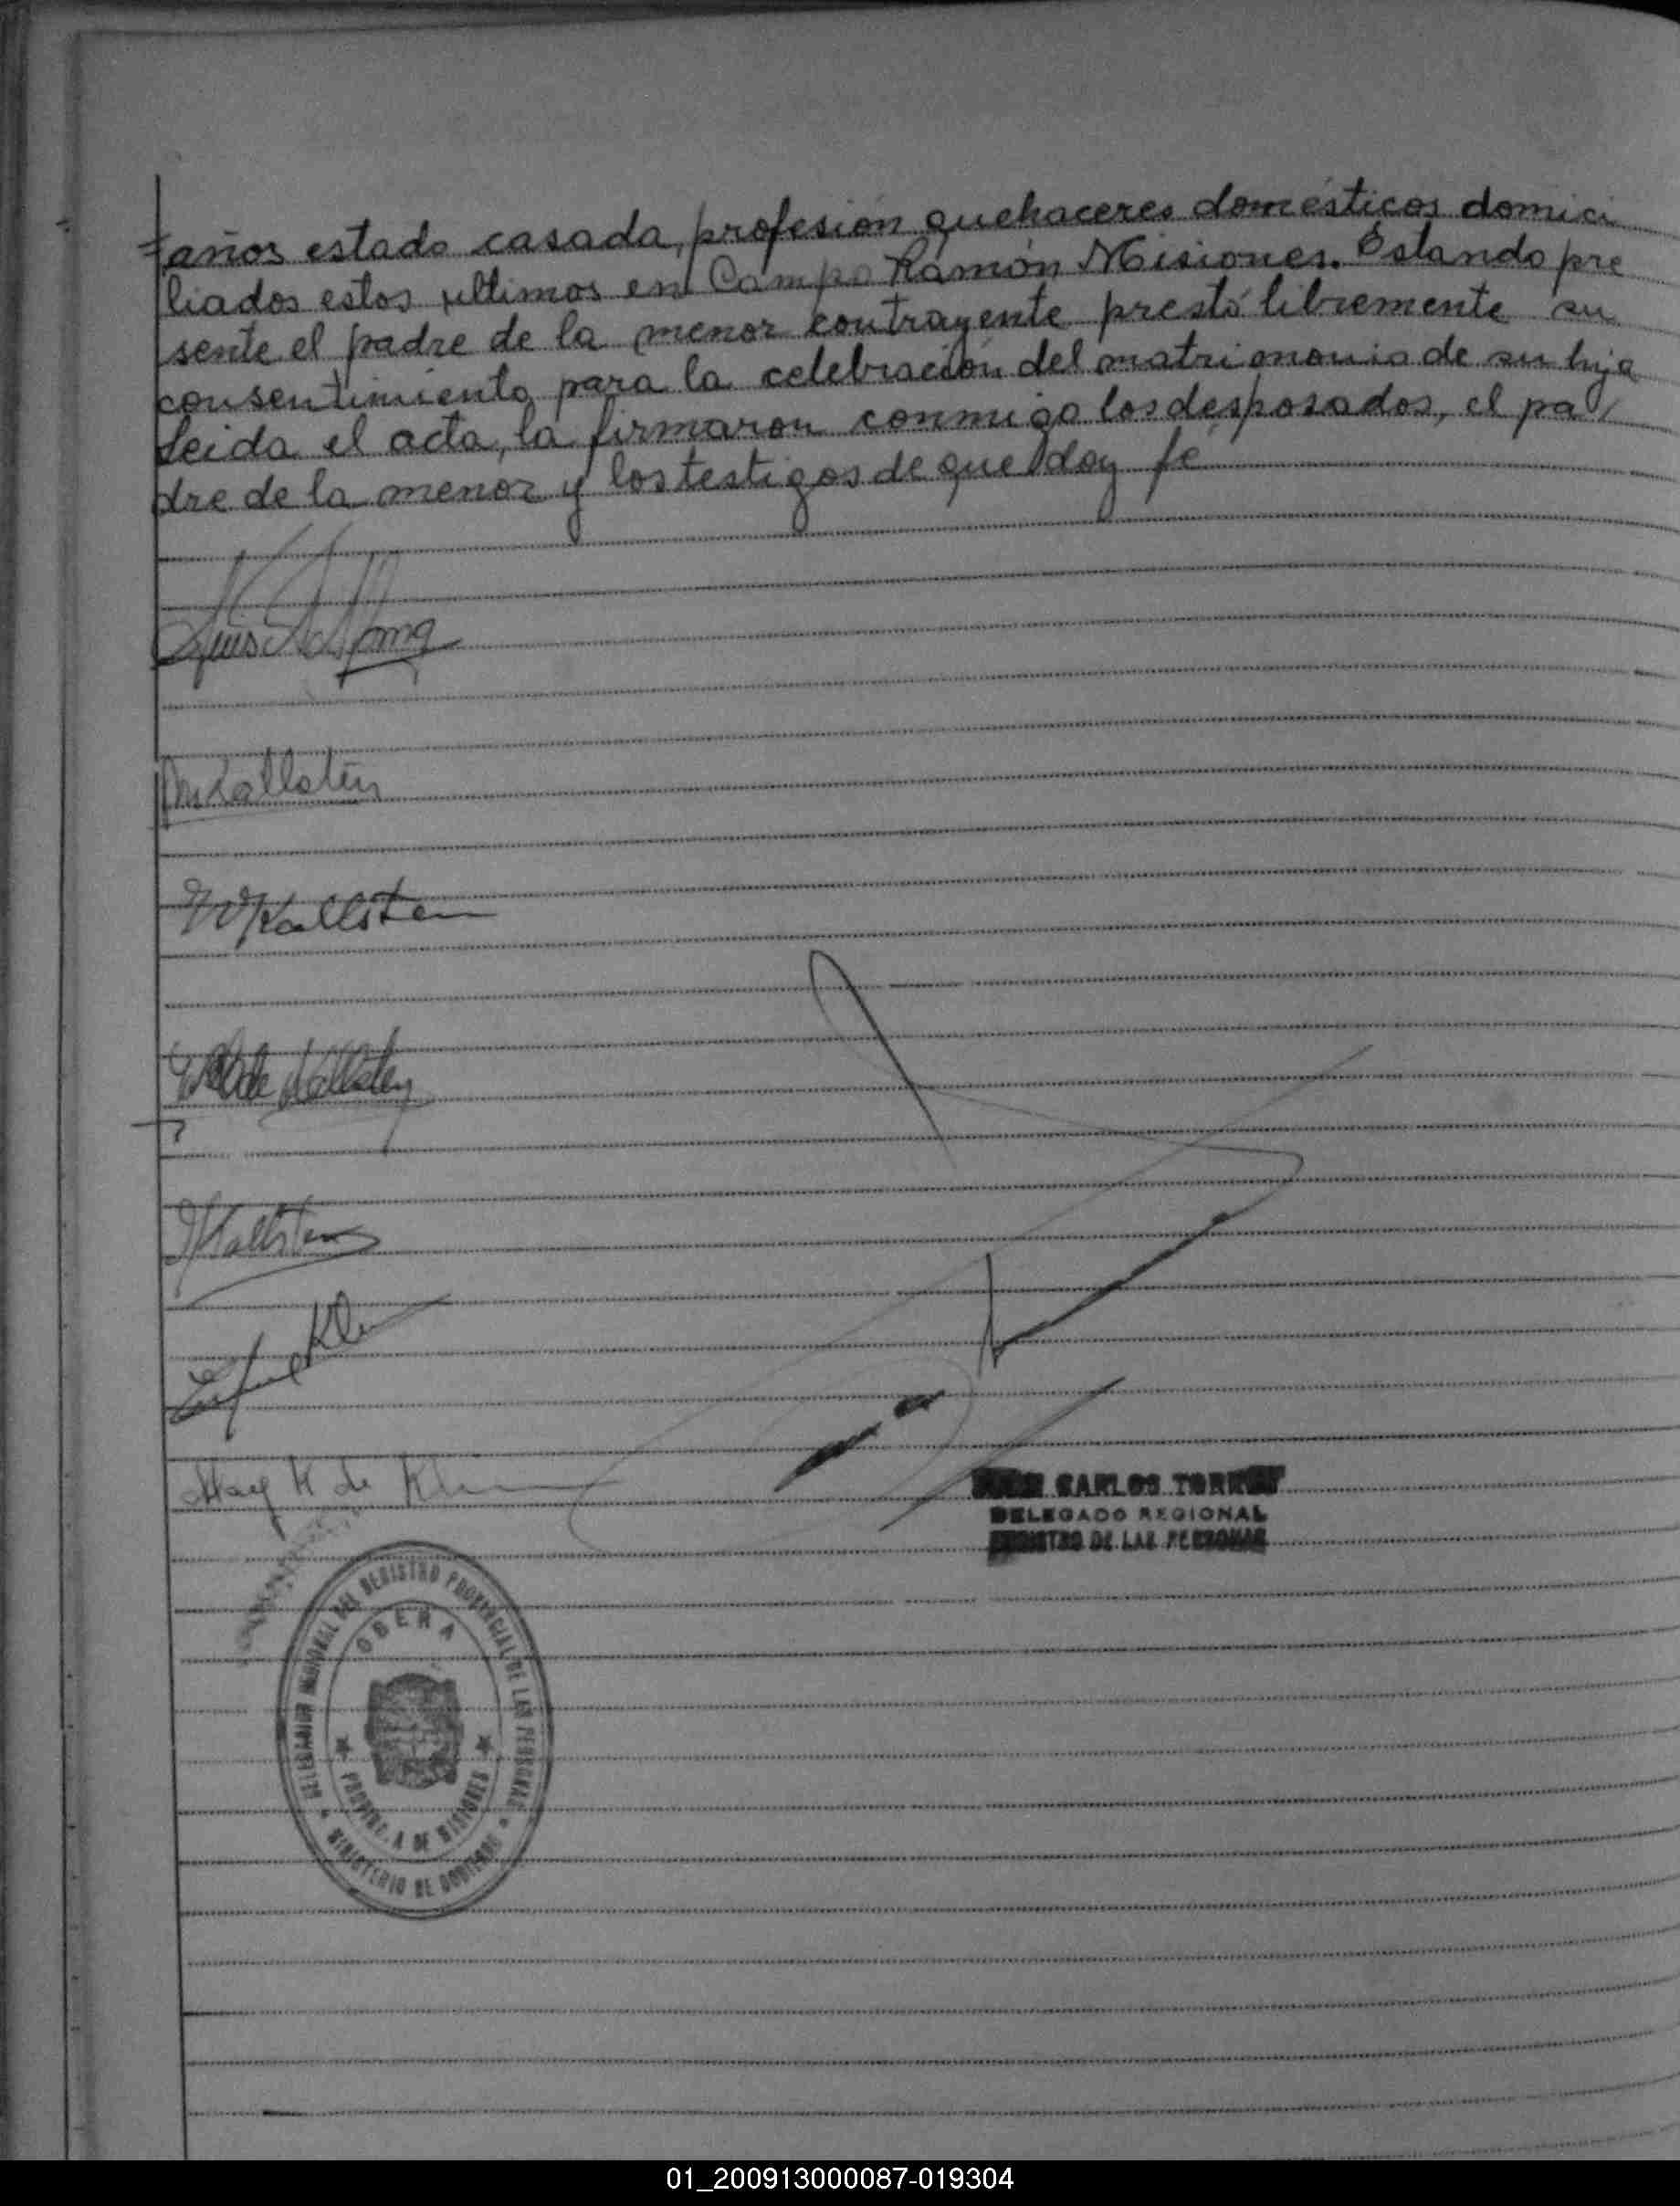 años estado casada, profesión quehaceres domésticos domici
liados estos ultimos en Campo Ramón Misiones. Estando pre
sente el padre de la menor contrayente prestó libremente su
consentimiento para la celebración del matrimonio de su hija
Leida el acta, la firmaron conmigo los desposados, el pa/
dre de la menor y los testigos de que doy fé
Luis
Kallsten
W Kallsten
de Kallsten
Kallsten
May K de Klein
CARLOS TORRES
DELEGADO REGIONAL
REGISTRO DE LAS PERSONAS
DEL REGISTRO PROVINCIAL DE LAS PERSONAS
OBERA
PROVINCIA DE MISIONES
MINISTERIO DE GOBIERNO
01_200913000087-019304